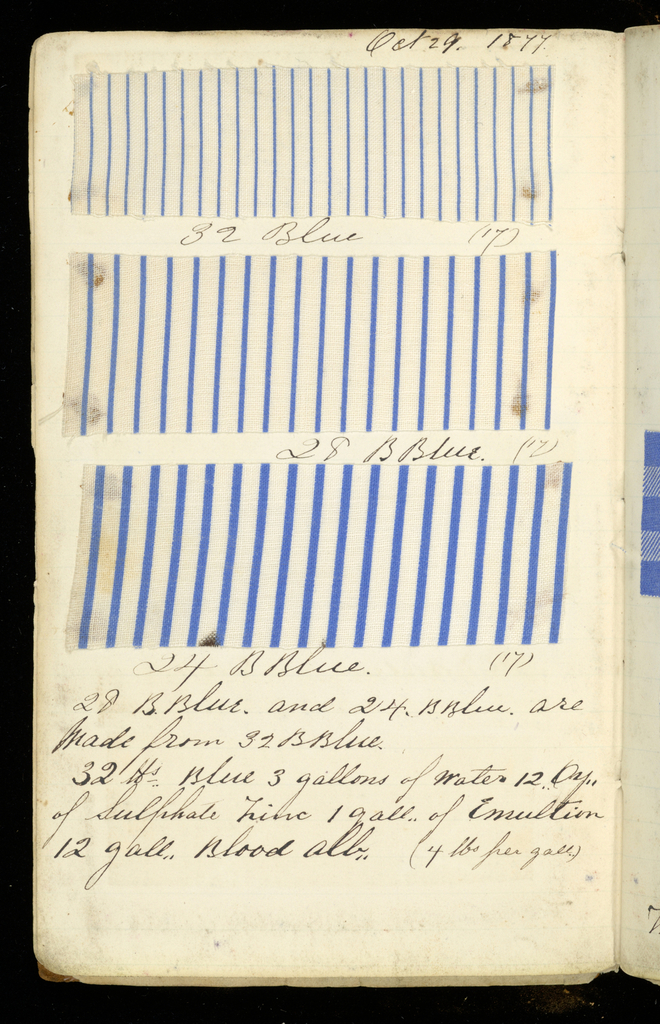 Oct 29. 1877.
32 Blue (17)
28 B Blue. (17)
24 B Blue. (17)
28 B. Blue. and 24. B Blue. are
Made from 32 B Blue.
32 lbs. Blue 3 gallons of Water 12. Oz..
of Sulphate Zinc 1 gall.. of Emultion
12 gall.. Blood alb.. (4 lbs per gall.)